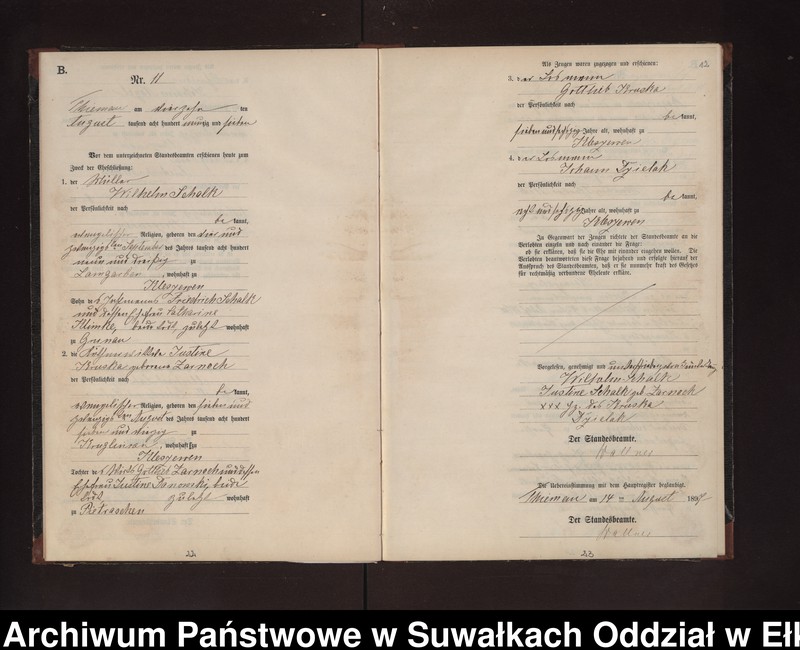 B.
Nr. 11
Thieman am vierzehn ten
August tausend acht hundert neunzig und sieben
Vor dem unterzeichneten Standesbeamten erschienen heute zum
Zweck der Eheschließung:
1. der Müller
Wilhelm Schalk
der Persönlichkeit nach
be kannt,
evangelischer Religion, geboren den vier und
zwanzigsten September des Jahres tausend acht hundert
neun und dreißig zu
Lamgarben, wohnhaft zu
Kleszewen
Sohn des Instmanns Friedrich Schalk
und dessen Ehefrau Katharine
Klimke, beide todt, zuletzt wohnhaft
zu Grunau
2. die Justine
Kruska geborene Zarnoch
der Persönlichkeit nach
be kannt,
evangelischer Religion, geboren den sieben und
zwanzigsten August des Jahres tausend acht hundert
und vierzig zu
Kruglinnen, wohnhaft zu
Kleszewen
Tochter des Wirths Gottlieb Zarnoch und dessen
Ehefrau Justine beide
todt zuletzt wohnhaft
zu Pietraschen
22
12
Als Zeugen waren zugezogen und erschienen:
3. der Losmann
Gottlieb Kruska
der Persönlichkeit nach
be kannt,
sieben und Jahre alt, wohnhaft zu
Kleszewen
4. der Losmann
Johann Dzielak
der Persönlichkeit nach
be kannt,
acht und Jahre alt, wohnhaft zu
Kleszewen
In Gegenwart der Zeugen richtete der Standesbeamte an die
Verlobten einzeln und nach einander die Frage:
ob sie erklären, daß sie die Ehe mit einander eingehen wollen. Die
Verlobten beantworteten diese Frage bejahend und erfolgte hierauf der
Ausspruch des Standesbeamten, daß er sie nunmehr kraft des Gesetzes
für rechtmäßig verbundene Eheleute erkläre.
Vorgelesen, genehmigt und
Wilhelm Schalk
Justine Schalk geb Zarnoch
xxx Hz. des Kruska
Dzielak
Der Standesbeamte.
Die Uebereinstimmung mit dem Hauptregister beglaubigt.
Thieman am 14 ten August 1897
Der Standesbeamte.
23
Archiwum Państwowe w Suwałkach Oddział w Ełk